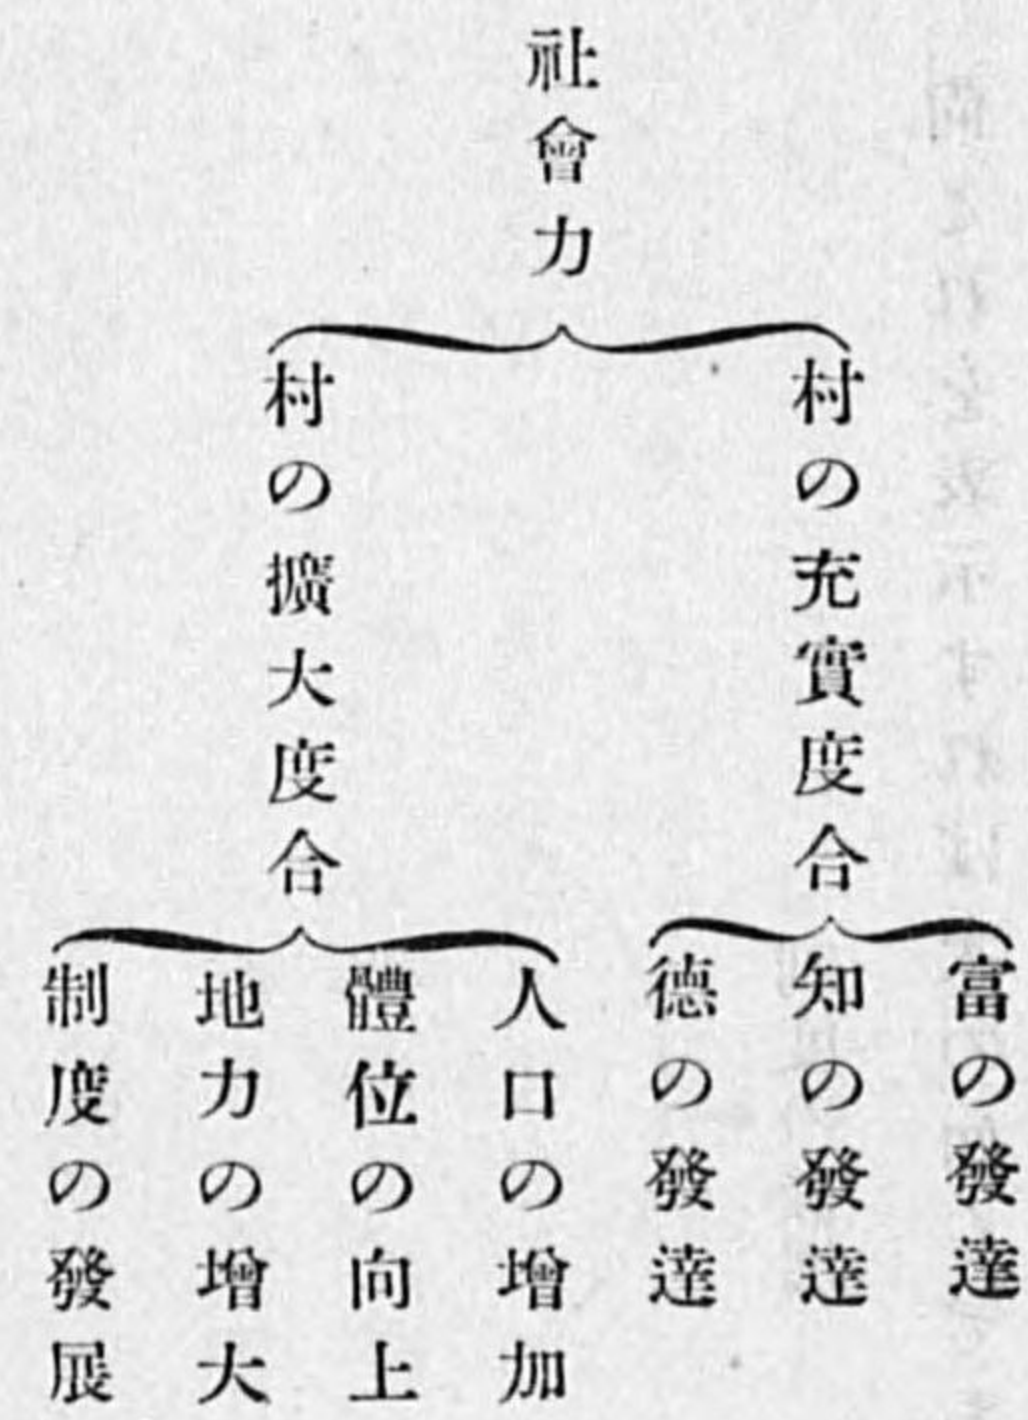 社會力
村の充實度合
富の發達
知の發達
德の發達
村の擴大度合
人口の增加
體位の向上
地力の增大
制度の發展